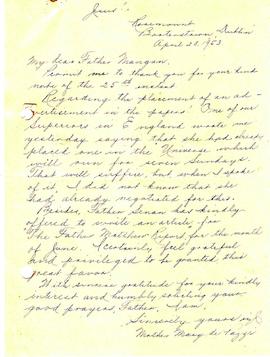 Jesus!
Rosemount
Booterstown, Dublin
April 28, 1953
My dear Father Mangan,
Permit me to thank you for your kind
note of the 25th instant
Regarding the placement of an ad-
vertisement in the papers: One of our
Superiors in England wrote me
yesterday saying that she had already
placed one in the Universe which
will run for seven Sundays.
That will suffice, but when I spoke
of it, I did not know that she
had already negotiated for this.
Besides, Father Senan has kindly
offered to write an article for
"The Father Matthew Report for the month
of June. I certainly feel grateful
and privileged to be granted this
great favor.
With sincere gratitude for your kindly
interest and humbly soliciting your
good prayers, Father, I am,
Sincerely yours in
Mother Mary de